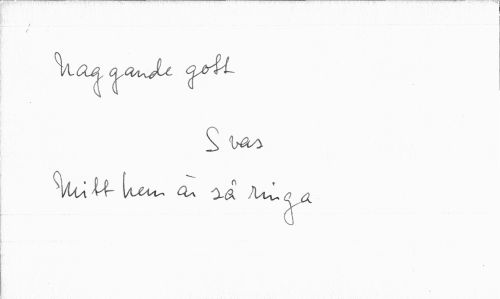 Naggande gott
Svas
Mitt hem är så ringa